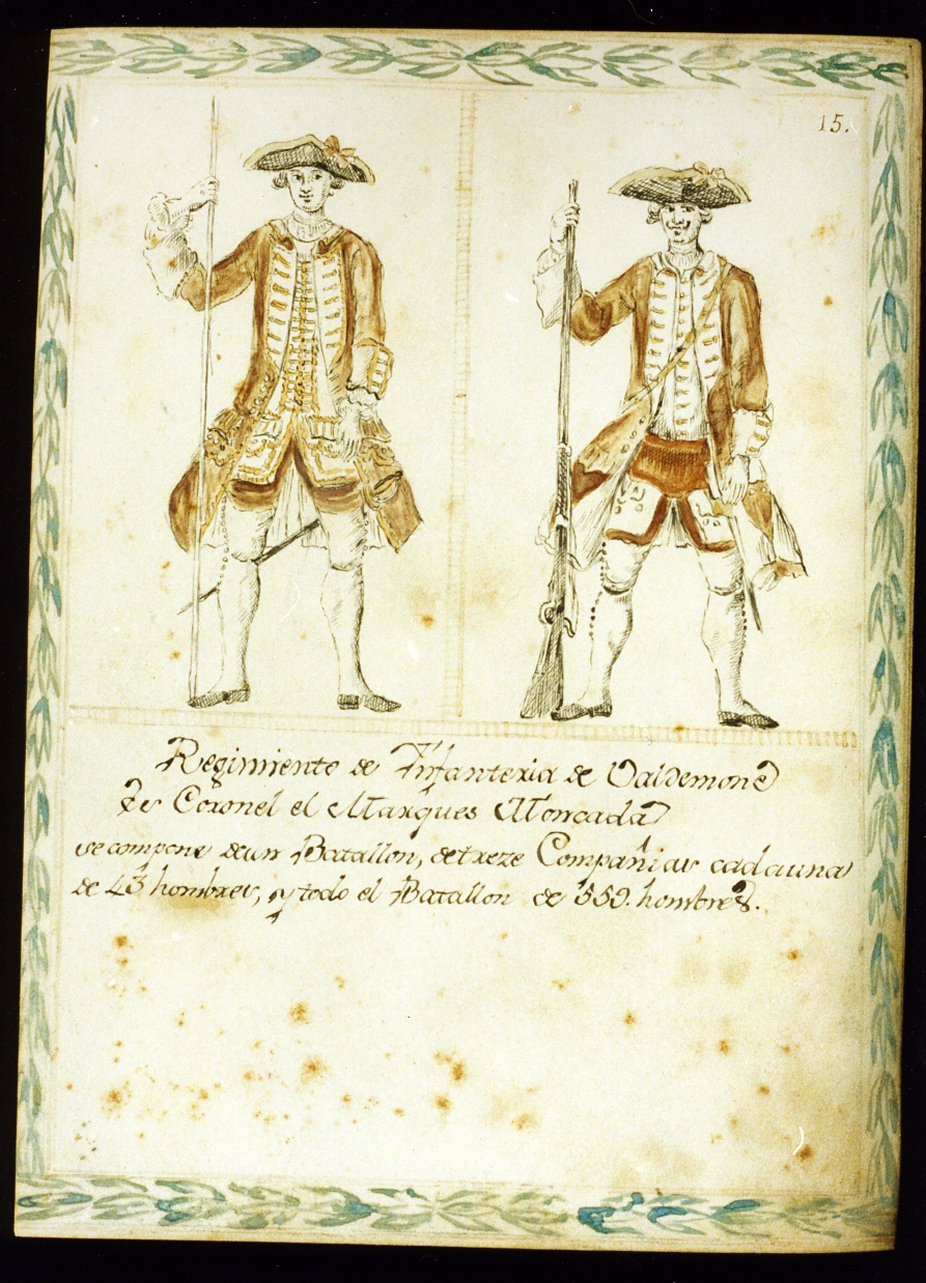 15.
Regimiento de Infanteria de Valdemone
es Coronel el Marques Moncada
se compone de un Batallon, de treze Compañias cada una
de 43 hombres, y todo el Batallon de 559. hombres.